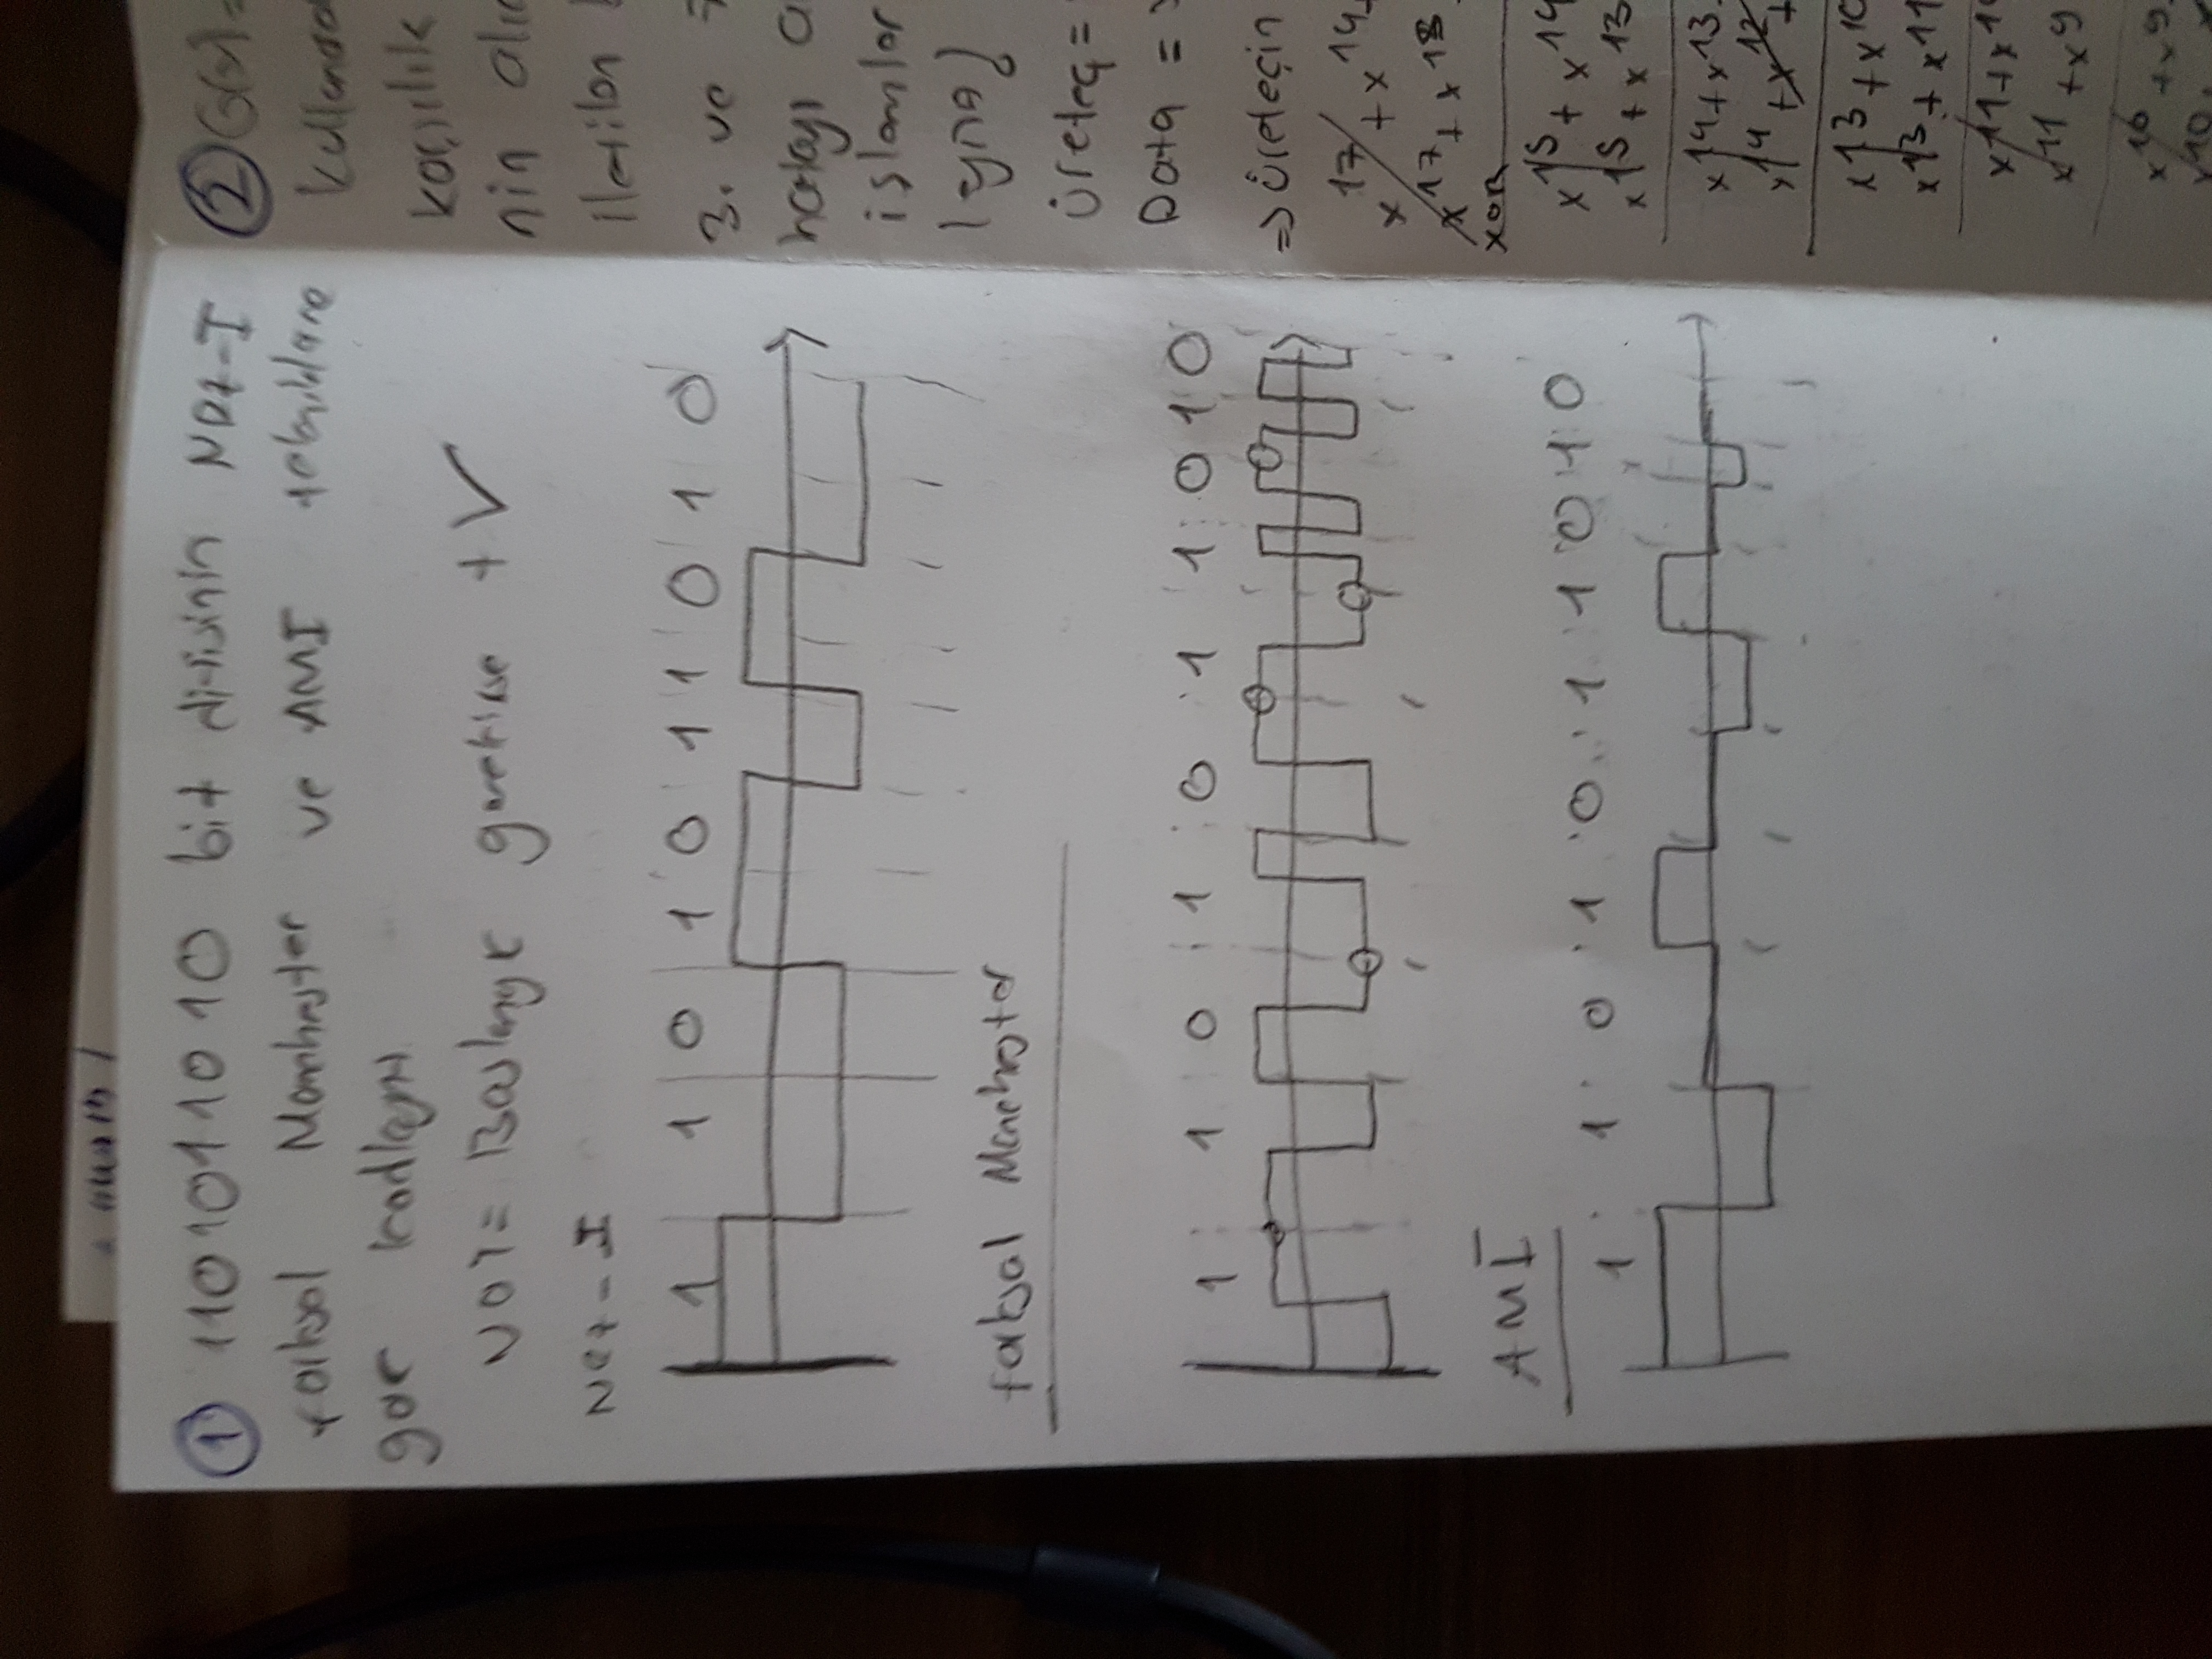 ① 1101011010 bit dizisinin NRZ-I
farksal Manchester ve AMI
göre kodlayın
NOT= Başlangıç gerekirse +V
NRZ-I
1 1 0 1 0 1 1 0 1 0
farksal Manchester
1 1 0 1 0 1 1 0 1 0
AMI
1 1 0 1 0 1 1 0 1 0
② G(x)=
nin
iletilen
3. ve 7
hatayı
işlemler
Üreteç=
Data =
=> Üreteçin
x17 + x14
x17 + x13
XOR
x15 + x14
x15 + x13
x14 + x13
x14 + x12 +
x13 + x10
x13 + x11
x11 + x10
x11 + x9
x10 + x9
x10